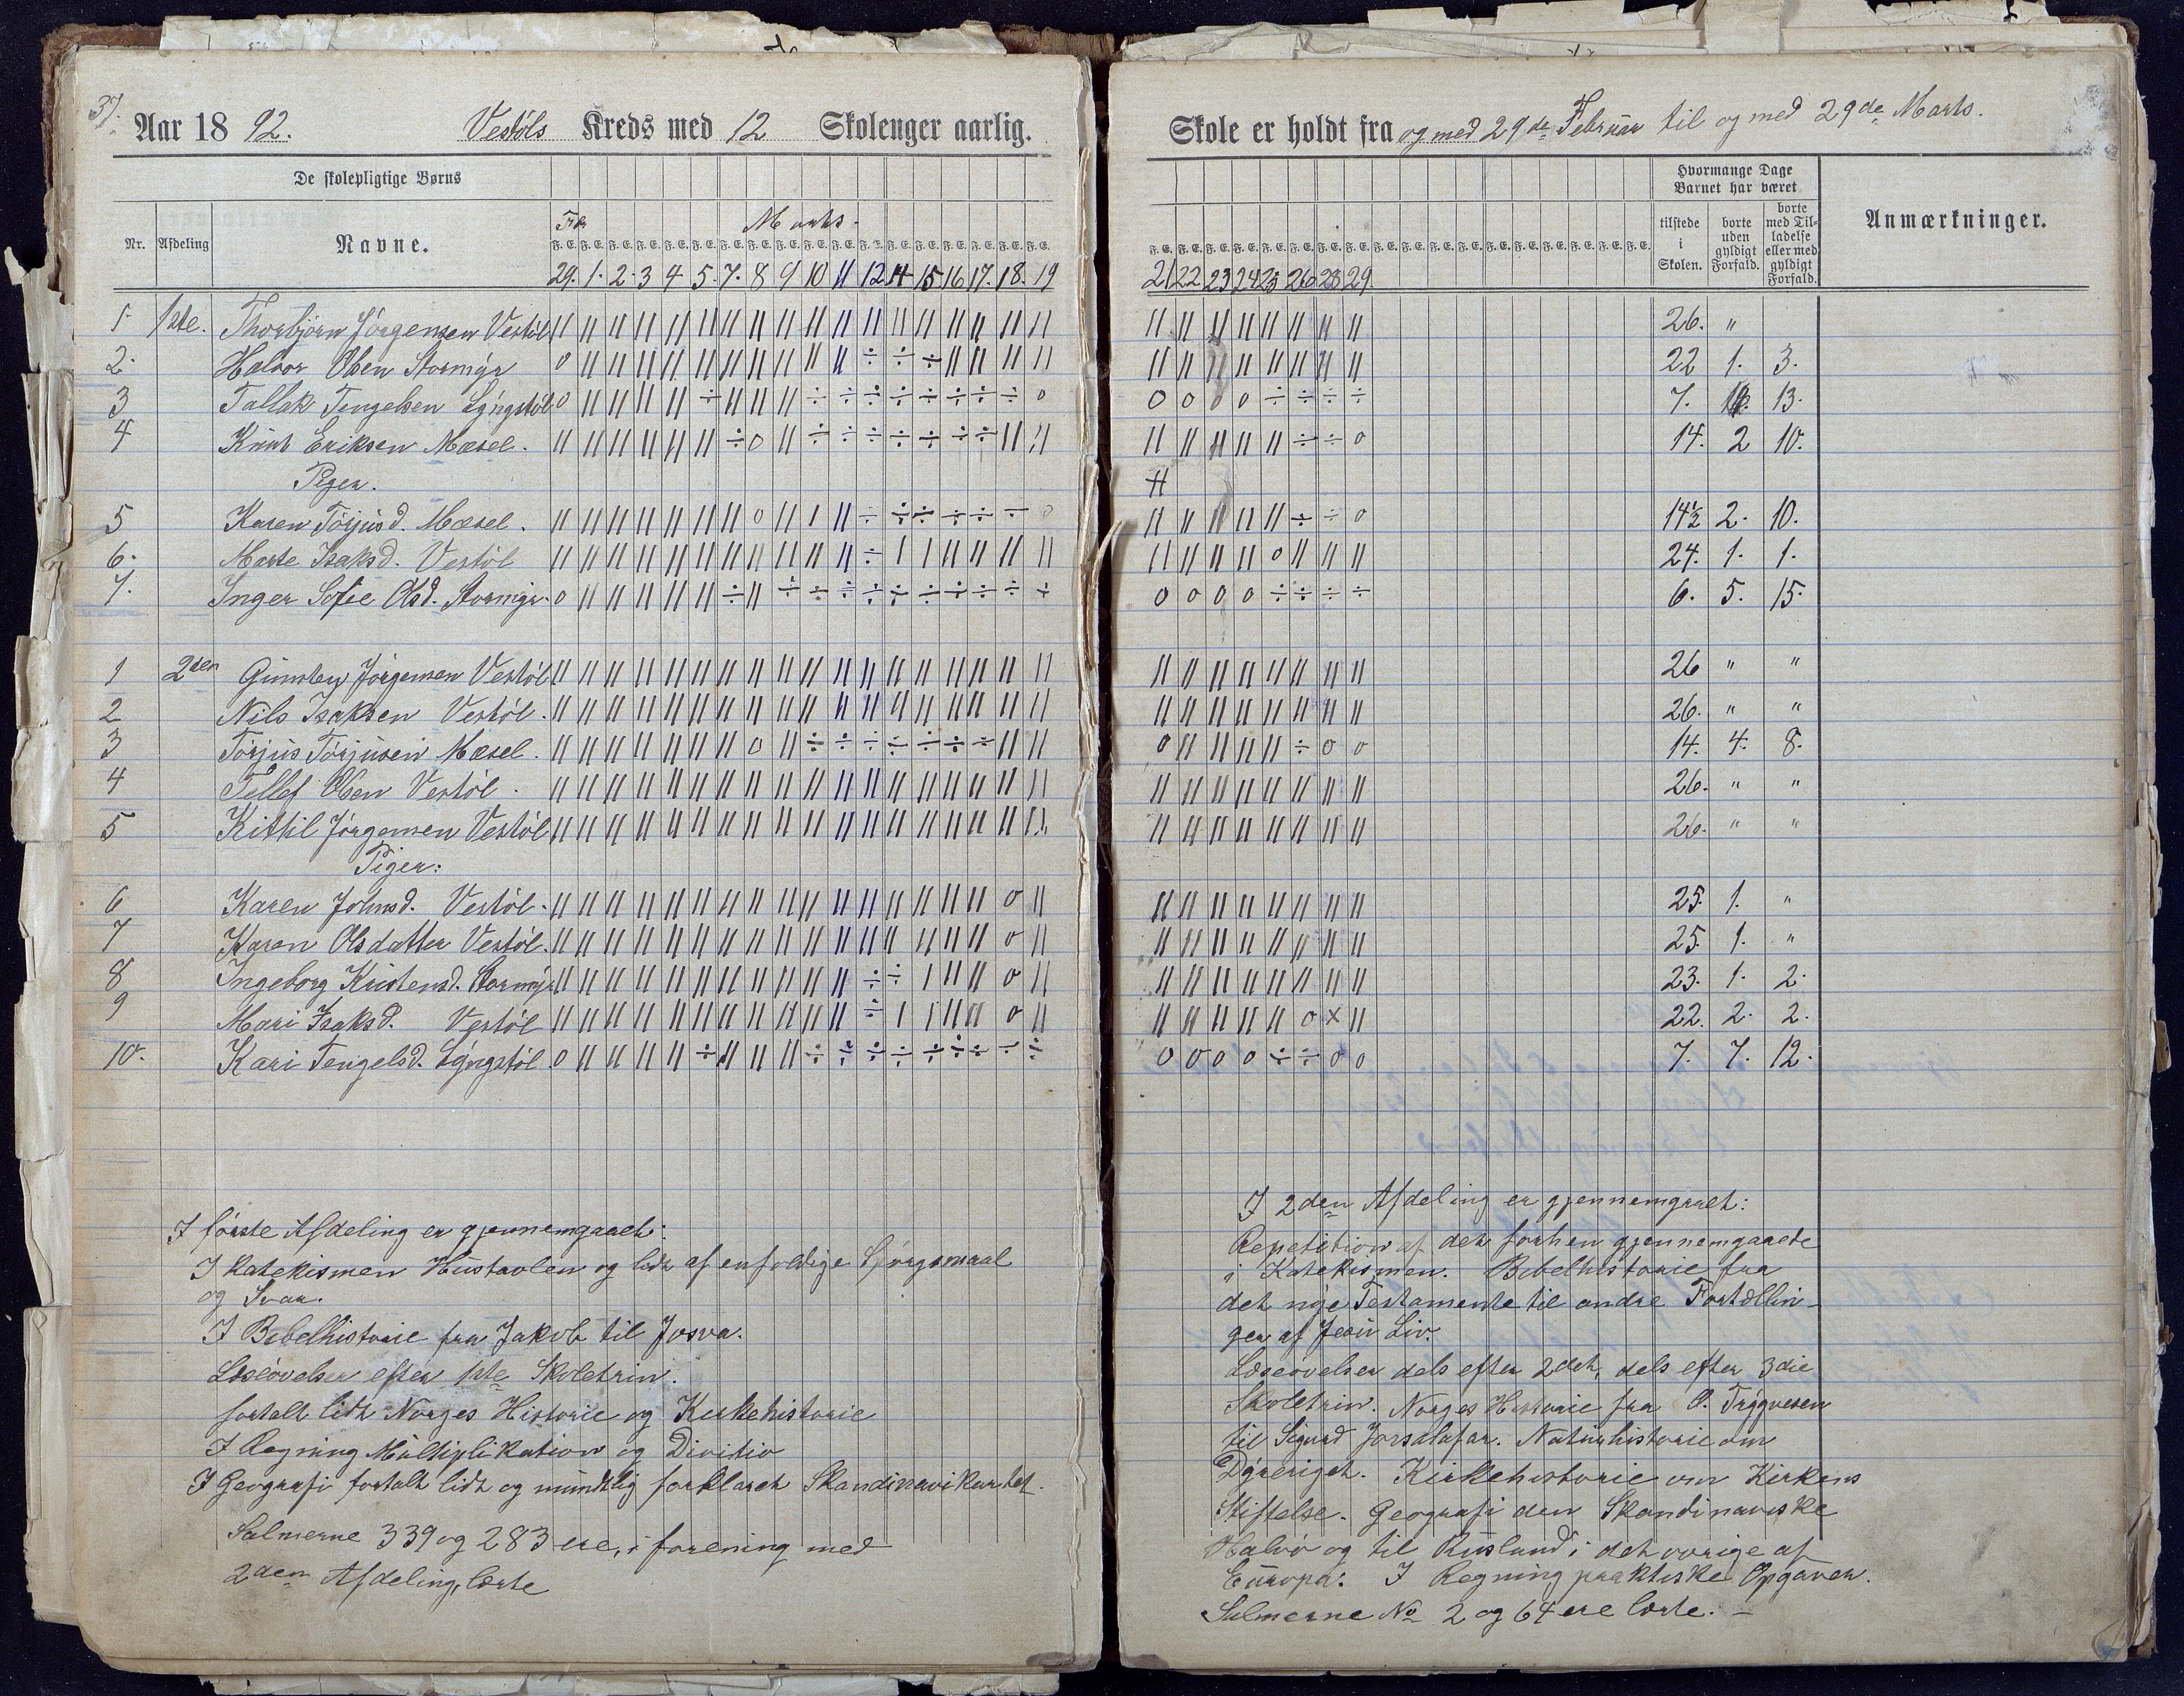 37.
Aar 18 92. Vestöls Kreds med 12 Skoleuger aarlig.
De skolepligtige Børns
Nr. Afdeling Navne.
Febr. Marts.
F. E. F. E. F. E. F. E. F. E. F. E. F. E. F. E. F. E. F. E. F. E. F. E. F. E. F. E. F. E. F. E. F. E. F. E.
29. 1. 2. 3 4 5. 7. 8 9 10 11 12 14 15. 16 17. 18. 19
1. 1ste. Thorbjörn Jörgensen Vestöl
2. Halvor Olsen Stormyr
3 Tallak Tengelsen Lyngstöl
4 Knut Eriksen Mæsel.
Piger.
5 Karen Törjusd. Mæsel.
6. Marte Isaksd. Vestöl
7. Inger Sofie Olsd. Stormyr.
1 2den Gunsten Jörgensen Vestöl
2 Nils Isaksen Vestöl.
3 Torjus Torjusen Mæsel.
4 Tellef Olsen Vestöl.
5 Kittil Jörgensen Vestöl
Piger:
6 Karen Johnsd. Vestöl.
7 Karen Olsdatter Vestöl.
8 Ingeborg Kristensd. Stormyr
9 Mari Isaksd. Vestöl
10. Kari Tengelsd. Lyngstöl.
I förste Afdeling er gjennemgaaet:
I Katekismen Hustavlen og lidt af enfoldige Spörgsmaal
og Svar.
I Bibelhistorie fra Jakob til Josva.
Læseövelser efter 1ste Skoletrin.
fortalt lidt Norges Historie og Kirkehistorie
I Regning Multiplikation og Divisio
I Geografi fortalt lidt og mundtlig forklaret Skandinavikartet.
Salmerne 339 og 283 ere, i forening med
2den Afdeling, lærte
Skole er holdt fra og med 29de Februar til og med 29de Marts.
Hvormange Dage
Barnet har været
tilstede i Skolen. borte uden gyldigt Forfald. borte med Tilladelse eller med gyldigt Forfald.
Anmærkninger.
F. E. F. E. F. E. F. E. F. E. F. E. F. E. F. E. F. E. F. E. F. E. F. E. F. E. F. E. F. E. F. E. F. E. F. E.
21 22 23 24 25 26 28 29.
26. "
22 1. 3.
7. 13.
14. 2 10.
14½ 2. 10.
24. 1. 1.
6. 5. 15.
26 " "
26. " "
14. 4. 8.
26. " "
26. " "
25. 1. "
25. 1. "
23. 1. 2.
22. 2. 2.
7. 7. 12.
I 2den Afdeling er gjennemgaaet:
Repetition af det forhen gjennemgaaede
i Katekismen. Bibelhistorie fra
det nye Testamente til andre Fortællin-
ger af Jesu Liv.
Læseövelser dels efter 2det, dels efter 3die
Skoletrin. Norges Historie fra O. Trygvesen
til Sigurd Jorsalafar. Naturhistorie om
Dyreriget. Kirkehistorie om Kirkens
Stiftelse. Geografi den Skandinaviske
Halvö og til Rusland i det övrige af
Europa: I Regning praktiske Opgaver.
Salmerne No 2 og 64 ere lærte. –